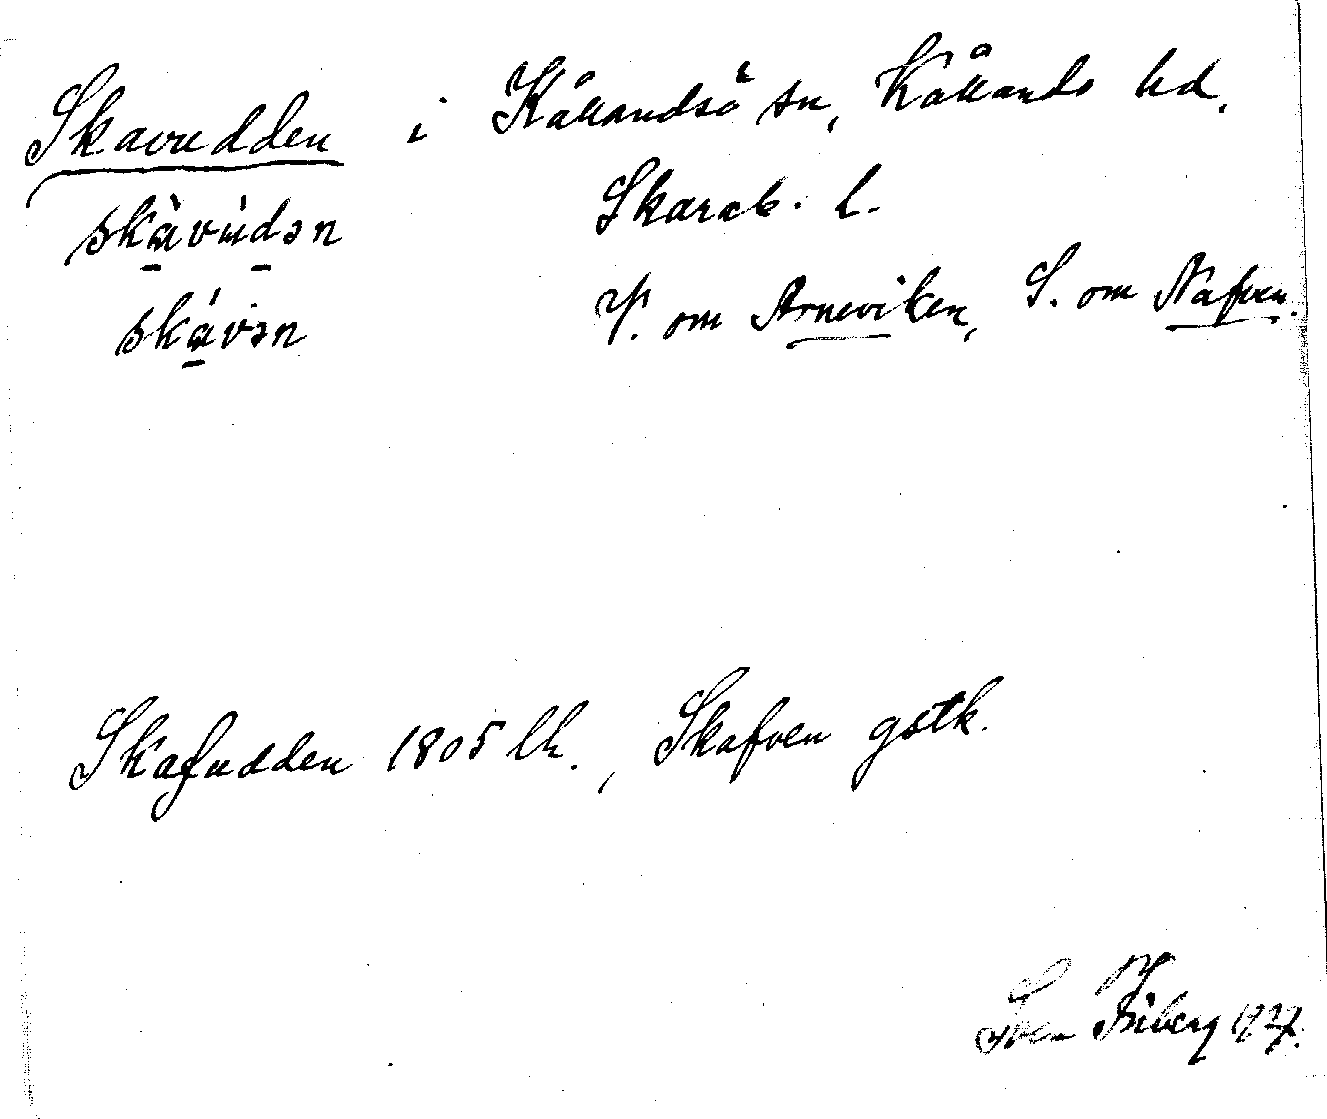 Skavudden i Kållandsö sn, Kållands hd.
skàvùdən Skarab. l.
skávən V. om Arneviken, S. om Nafven.
Skafudden 1805 lk., Skafven gstk.
Sven Friberg 1927.